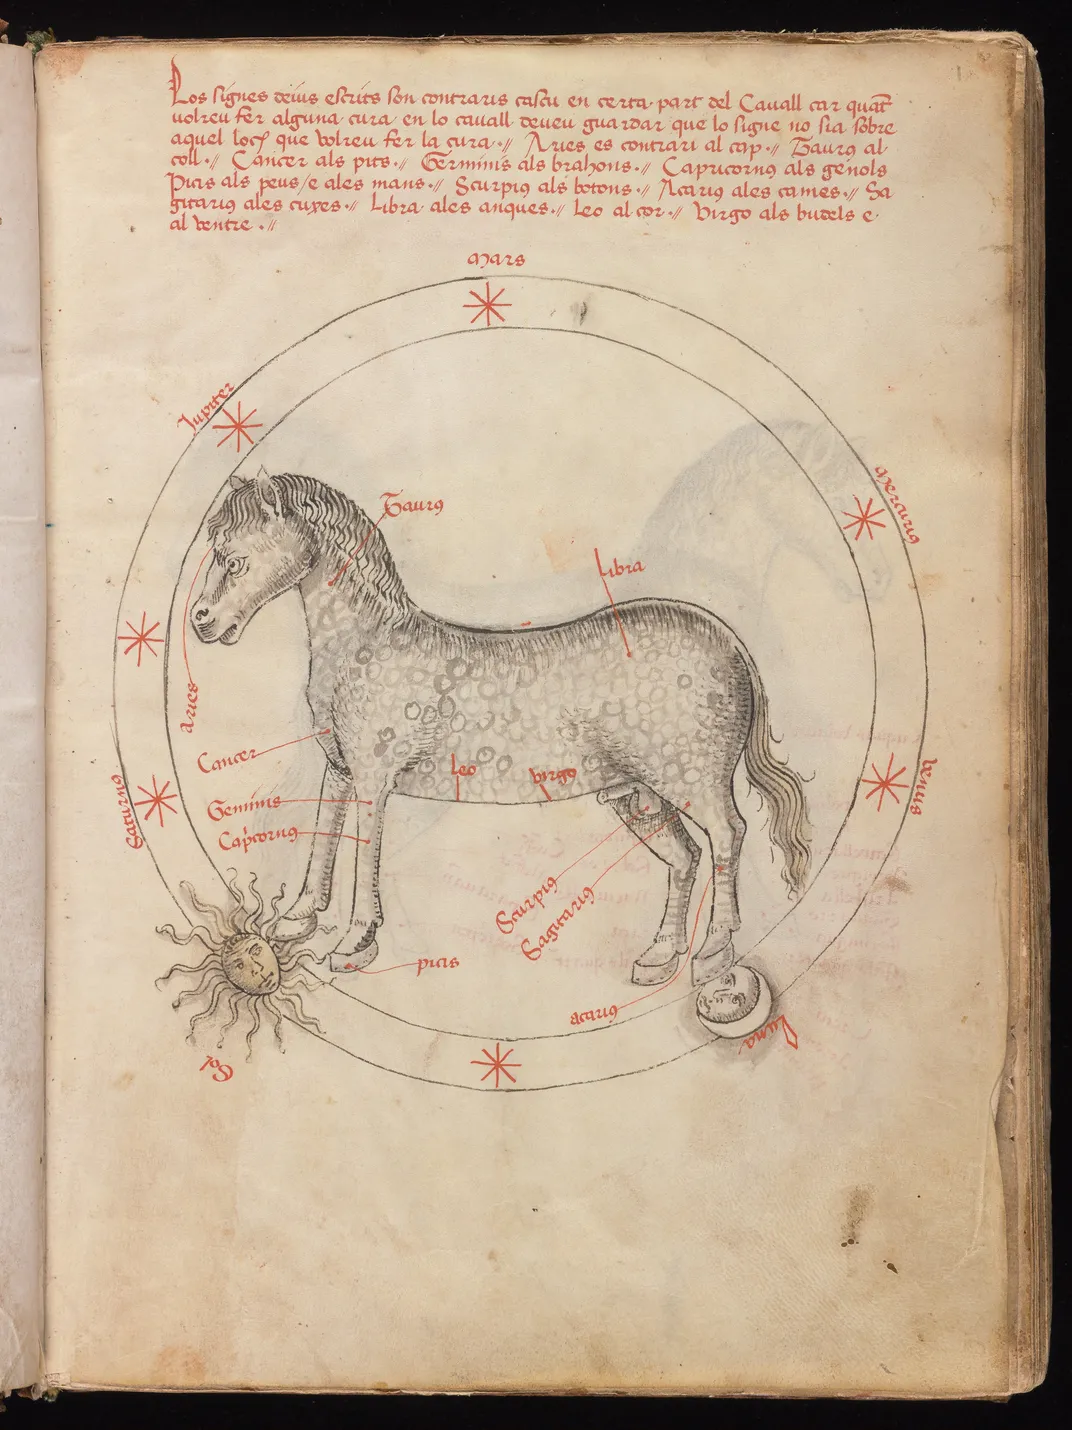 Los signes deius escrits son contraris cascu en certa part del Cauall car quāt
volreu fer alguna cura en lo cauall deueu guardar que lo signe no sia sobre
aquel loch que volreu fer la cura · // Aries es contrari al cap · // Taurus al
coll · // Cancer als pits · // Geminis als brahons · // Capricornus als genols
Picis als peus / e ales mans · // Scurpius als botons · // Acarius ales cames · // Sa
gitarius ales cuxes · // Libra ales anques · // Leo al cor · // Virgo als budels e
al ventre · //
Mars
Jupiter
Mercurius
Taurus
Libra
aries
Cancer
Leo
virgo
Venus
Saturnus
Geminis
Capricornus
Scurpius
Sagitarius
picis
acarius
Sol
Luna